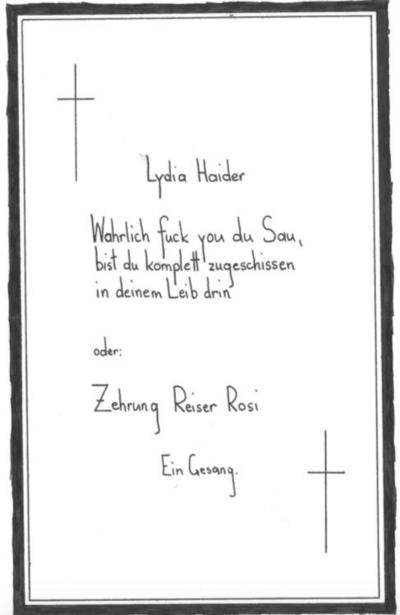 Lydia Haider
Wahrlich fuck you du Sau,
bist du komplett zugeschissen
in deinem Leib drin
oder:
Zehrung Reiser Rosi
Ein Gesang.